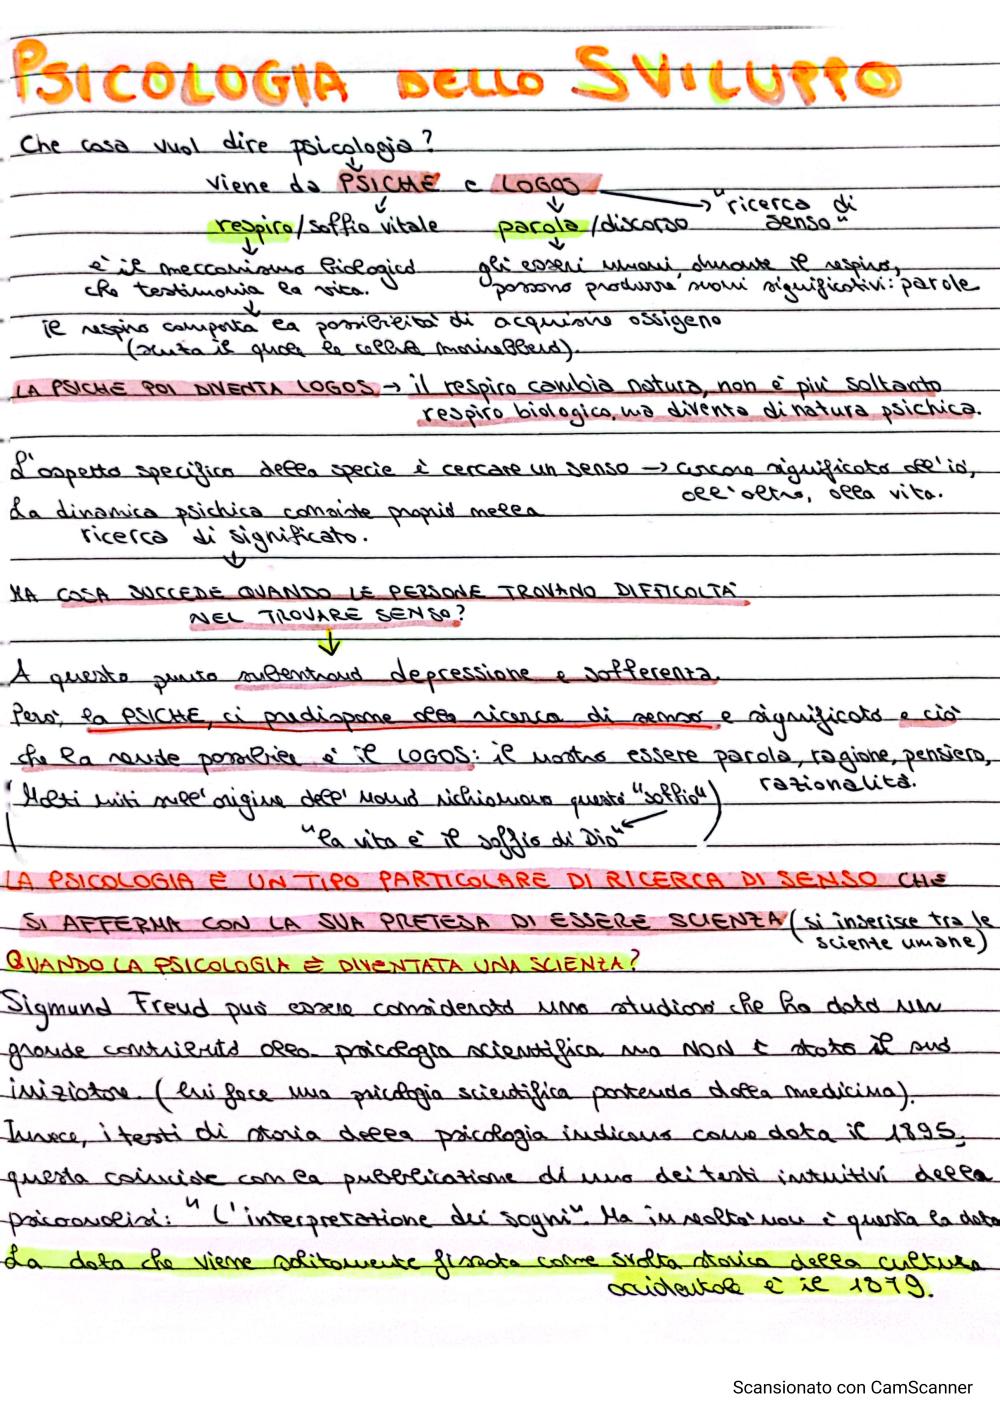 PSICOLOGIA DELLO SVILUPPO
Che cosa vuol dire psicologia?
viene da PSICHE e LOGOS → "ricerca di senso"
respiro/soffio vitale parola/discorso
è il meccanismo biologico che testimonia la vita.
gli esseri umani, durante il respiro, possono produrre suoni significativi: parole
il respiro comporta la possibilità di acquisire ossigeno
(senza il quale le cellule morirebbero).
LA PSICHE POI DIVENTA LOGOS → il respiro cambia natura, non è più soltanto
respiro biologico, ma diventa di natura psichica.
L'aspetto specifico della specie è cercare un senso → cercare significato all'io,
all'altro, alla vita.
La dinamica psichica consiste proprio nella
ricerca di significato.
MA COSA SUCCEDE QUANDO LE PERSONE TROVANO DIFFICOLTÀ
NEL TROVARE SENSO?
A questo punto subentrano depressione e sofferenza.
Però, la PSICHE, ci predispone alla ricerca di senso e significato e ciò
che la rende possibile è il LOGOS: il nostro essere parola, ragione, pensiero,
razionalità.
(Molti miti sull'origine dell'uomo richiamano questo "soffio")
"la vita è il soffio di Dio"
LA PSICOLOGIA È UN TIPO PARTICOLARE DI RICERCA DI SENSO CHE
SI AFFERMA CON LA SUA PRETESA DI ESSERE SCIENZA (si inserisce tra le
scienze umane)
QUANDO LA PSICOLOGIA È DIVENTATA UNA SCIENZA?
Sigmund Freud può essere considerato uno studioso che ha dato un
grande contributo alla psicologia scientifica ma NON è stato il suo
iniziatore. (lui fece una psicologia scientifica partendo dalla medicina).
Invece, i testi di storia della psicologia indicano come data il 1895,
questa coincide con la pubblicazione di uno dei testi intuitivi della
psicoanalisi: "L'interpretazione dei sogni". Ma in realtà non è questa la data
La data che viene solitamente fissata come svolta storica della cultura
occidentale è il 1879.
Scansionato con CamScanner